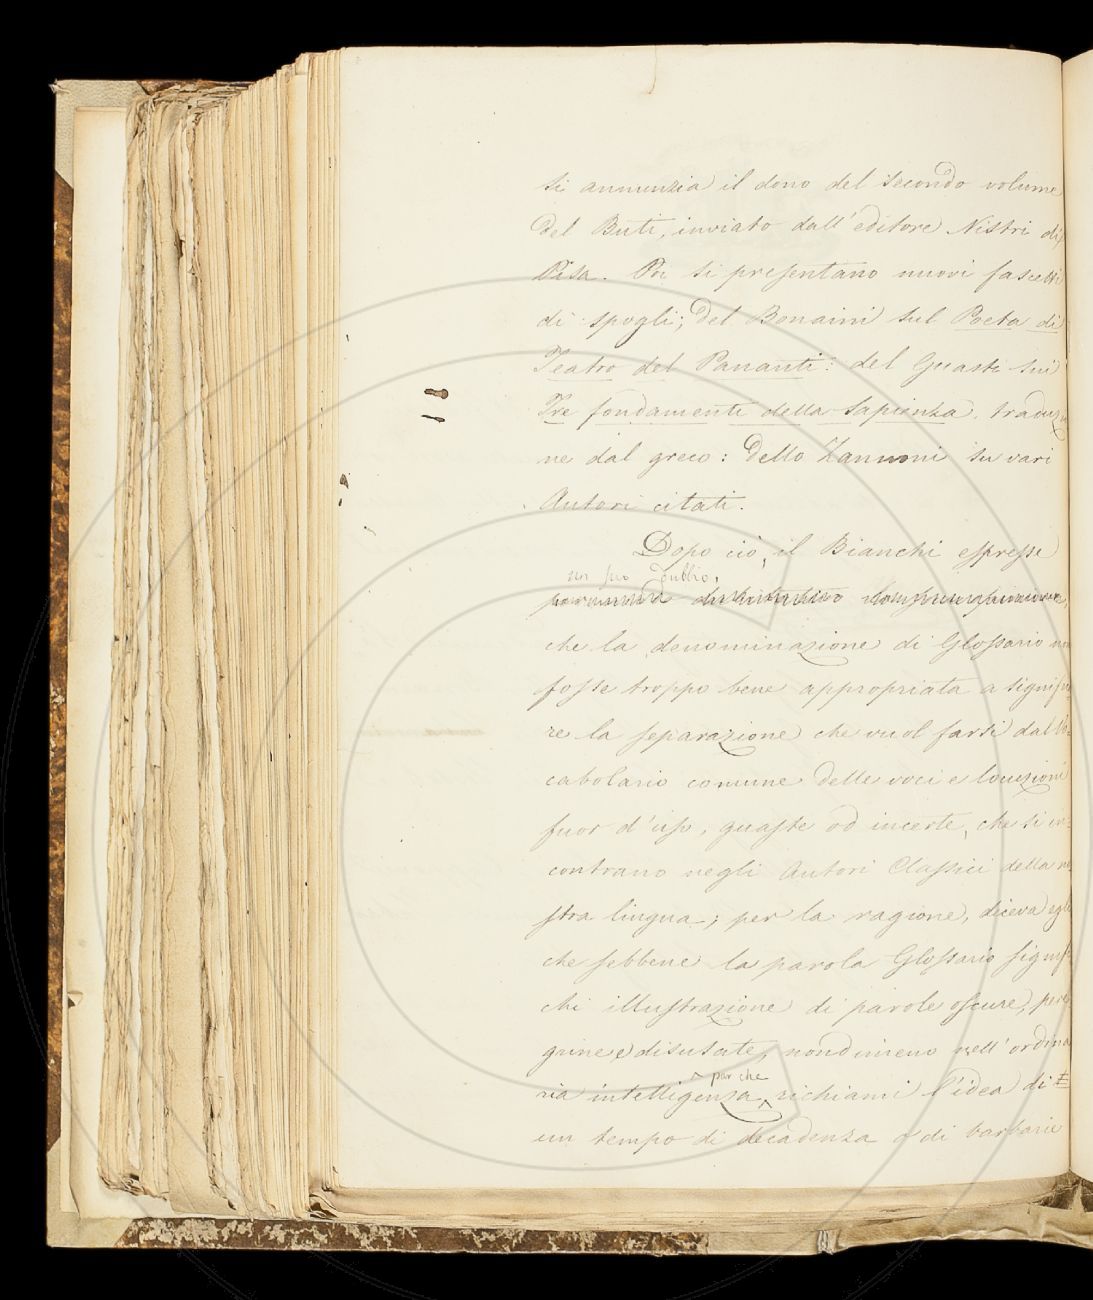 si annunzia il dono del secondo volume
del Buti, inviato dall'editore Nistri di
Pisa. Poi si presentano nuovi fascetti
di spogli; del Bonaini sul Poeta di
Teatro del Pananti: del Guasti sui
Tre fondamenti della sapienza, traduzio
ne dal greco: dello Zannoni su vari
Autori citati.
Dopo ciò, il Bianchi espresse
un suo dubbio,
che la denominazione di Glossario non
fosse troppo bene appropriata a significa
re la separazione che vuol farsi dal Vo
cabolario comune delle voci e locuzioni
fuor d'uso, guaste od incerte, che si in
contrano negli Autori Classici della no
stra lingua; per la ragione, diceva egli
che sebbene la parola Glossario signifi
chi illustrazione di parole oscure, pere
grine e disusate, nondimeno nell'ordina
par che
ria intelligenza richiami l'idea di
un tempo di decadenza o di barbarie